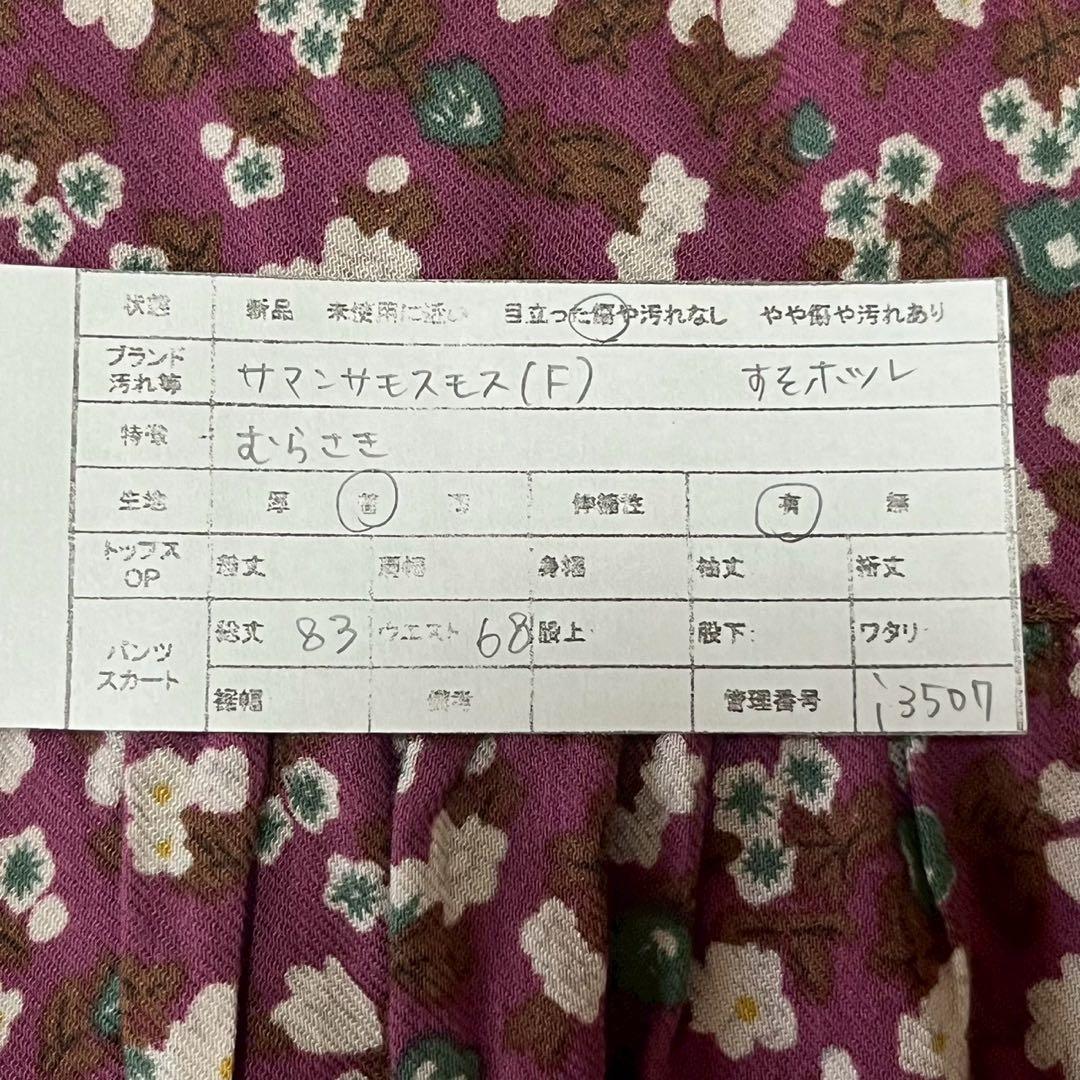 状態 新品 未使用に近い 目立った傷や汚れなし やや傷や汚れあり
ブランド
汚れ等 サマンサモスモス(F) すそホツレ
特徴 むらさき
生地 厚 普 薄 伸縮性 有 無
トップス
OP 総丈 肩幅 身幅 袖丈 裄丈
パンツ
スカート 総丈 83 ウエスト 68 股上: 股下: ワタリ
裾幅 備考 管理番号 i3507